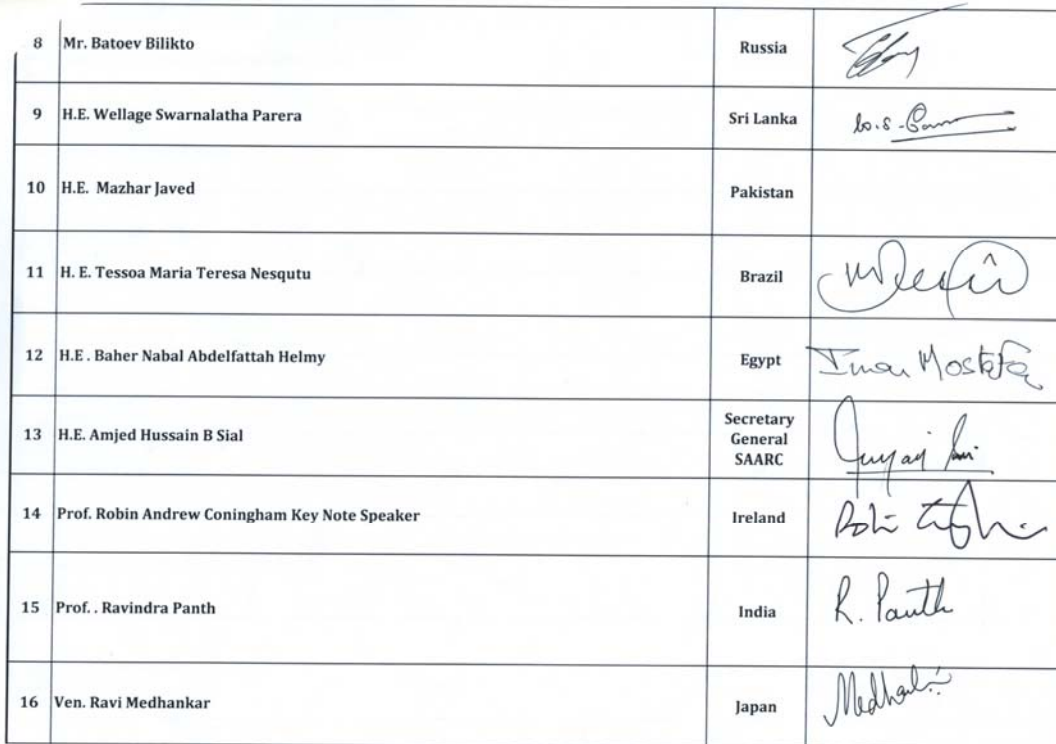 8 Mr. Batoev Bilikto Russia
9 H.E. Wellage Swarnalatha Parera Sri Lanka W.S.
10 H.E. Mazhar Javed Pakistan
11 H. E. Tessoa Maria Teresa Nesqutu Brazil
12 H.E . Baher Nabal Abdelfattah Helmy Egypt Iman Mostafa
13 H.E. Amjed Hussain B Sial Secretary General SAARC
14 Prof. Robin Andrew Coningham Key Note Speaker Ireland
15 Prof. . Ravindra Panth India R. Panth
16 Ven. Ravi Medhankar Japan